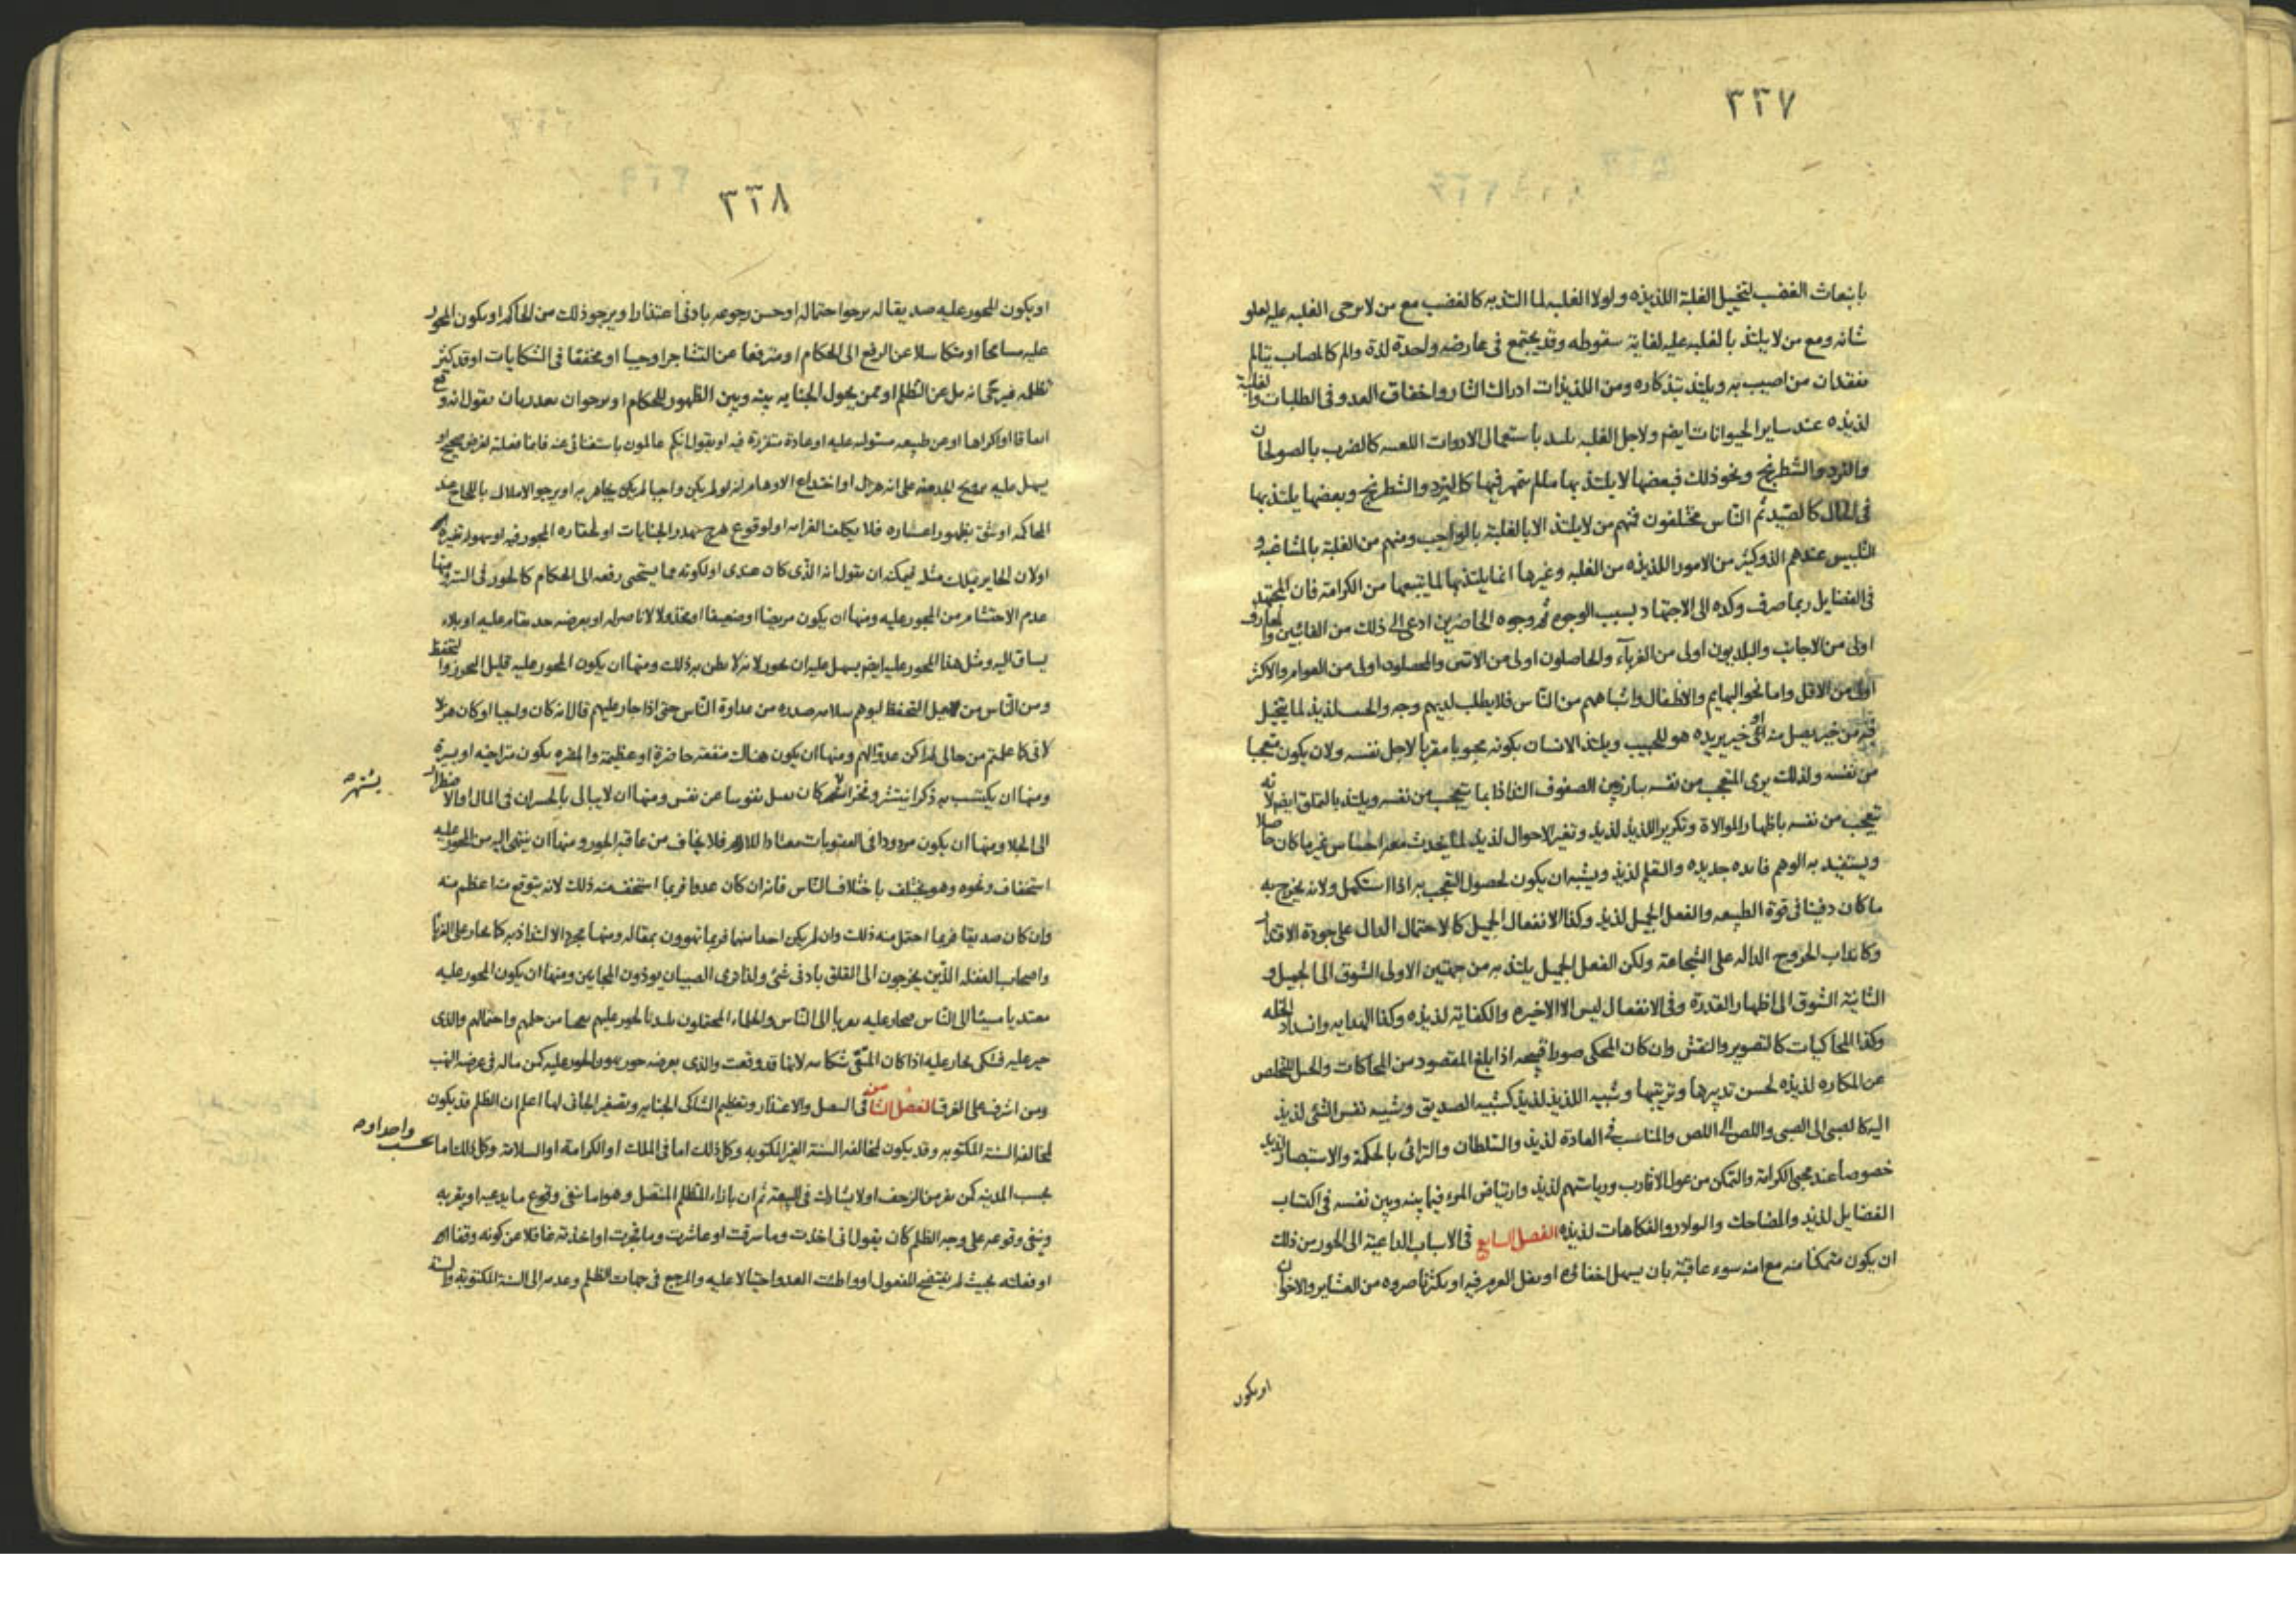 ٣٢٧
بانبعاث الغضب لتخيل الغلبة اللذيذه ولولا الغلبه لما التذ به كالغضب مع من لا يرجى الغلبه عليه لعلو
شانه ومع من لا يلتذ بالغلبه عليه لغاية سقوطه وقد يجتمع فى عارضه واحدة لذة والم كالمصاب يتالم
بفقدان من اصيب به ويلتذ بتذكاره ومن اللذيذات ادراك الثار واخفاق العدو فى الطلبات والغلبة
لذيذه عند ساير الحيوانات ايضم ولاجل الغلبه يلتذ باستعمال الادوات اللعبيه كالضرب بالصولجان
والنرد والشطرنج ونحو ذلك فبعضها لا يلتذ بها ما لم يتمهر فيها كالنرد والشطرنج وبعضها يلتذ بها
فى الحال كالصيد ثم الناس مختلفون فمنهم من لا يلتذ الا بالغلبة بالواجب ومنهم من الغلبة بالمشاغبه و
التلبيس عندهم الذ وكثير من الامور اللذيذه من الغلبه وغيرها انما يلتذ بها لما يتبعها من الكرامة فان المجتهد
فى الفضايل ربما صرف وكده الى الاجتهاد بسبب الوجوه ثم وجوه الحاضرين ادعى الى ذلك من الغائبين والمعارف
اولى من الاجانب والبلديون اولى من الغرباء والحاصلون اولى من الاتين والمحصلون اولى من العوام والاكثر
اولى من الاقل واما نحو البهايم والاطفال واشباههم من الناس فلا يطلب لديهم وجه والحب لذيذ لما يتخيل
فيه من خير يصل منه او خير يريده هو للحبيب ويلتذ الانسان بكونه محبوبا مقربا لاجل نفسه ولان يكون متعجبا
من نفسه ولذلك يرى المتعجب من نفسه يبارز بين الصفوف التذاذا بما يتعجب من نفسه ويلتذ بالتملق ايضم لانه
يتعجب من نفسه باظهار الموالاة وتكرير اللذيذ لذيذ وتغير الاحوال لذيذ لما يحدث معه احساس بغير ما كان حاصلا
ويستفيد به الوهم فايده جديده والتعلم لذيذ ويشبه ان يكون لحصول التعجب به اذا استكمل ولانه يخرج به
ما كان دفينا فى قوة الطبيعه والفعل الجميل لذيذ وكذا الانفعال الجميل كالاحتمال الدال على جودة الاقتدار
وكانداب الحروح الداله على الشجاعة ولكن الفعل الجميل يلتذ به من جهتين الاولى الشوق الى الجميل و
الثانية الشوق الى اظهار القدرة وفى الانفعال ليس الا الاخيره والكفاية لذيذه وكذا الهدايه وانسداد الخله
وكذا المحاكيات كالتصوير والنقش وان كان المحكى صورا قبيحه اذا بلغ المقصود من المحاكات والحيل للتخلص
عن المكاره لذيذه لحسن تدبيرها وترتيبها وشبيه اللذيذ لذيذ كشبيه الصديق وشبيه نفس الشئ لذيذ
اليه كالصبى الى الصبى واللص الى اللص والمناسب فى العادة لذيذ والسلطان والترائى بالحكمة والاستبصار لذيذ
خصوصا عند محبى الكرامة والتمكن من عول الاقارب ورياستهم لذيذ وارتياض المرء فيما بينه وبين نفسه فى اكتساب
الفضايل لذيذ والمضاحك والنوادر والفكاهات لذيذه الفصل السابع فى الاسباب الداعية الى الجور من ذلك
ان يكون متمكنا منه مع امنه سوء عاقبة بان يسهل اخفاؤه او يقل الغرم فيه او يكثر ناصروه من العشاير والاخوان
او يكون
٣٢٨
او يكون المجور عليه صديقا له يرجوا احتماله او حسن رجوعه بادنى اعتذار او يرجو ذلك من الحاكم او يكون المجور
عليه مسامحا او متكاسلا عن الرفع الى الحكام او مترفعا عن التشاجر او حييا او مخففا فى الشكايات او قد كثر
تظلمه فيرجى انه مل عن التظلم او ممن يحول الجنايه بينه وبين الظهور للحكام او يرجو ان يعتذر بان يقول انه وقع
اتفاقا او اكراها او عن طبيعه مستوليه عليه او عادة متقررة فيه او يقول انكم عالمون باستغنائى عنه فانما فعلته لغرض صحيح او
يسهل عليه ترويج الخدعه على انه هزل او اختداع الاوهام انه لو لم يكن واجبا لم يكن يجاهر به او يرجو الاملال بالالحاح عند
الحاكم او يثق بظهور اعساره فلا يكلف الغرامه او لوقوع هرج يهدر الجنايات او لحقاره المجور فيه او سهولة تغيره
او لان الجاير يملك مثله ليمكنه ان يقول انه الذى كان عندى او لكونه مما يستحى رفعه الى الحكام كالجور فى الستر ومنها
عدم الاحتشام من المجور عليه ومنها ان يكون مريضا او ضعيفا او مخذولا لا ناصر له او بعرضه حد يقام عليه او بلاء
يساق اليه ومثل هذا المجور عليه ايضم يسهل عليه ان يجور لانه لا يظن به ذلك ومنها ان يكون المجور عليه قليل التحرز والتحفظ
ومن الناس من يهمل التحفظ ليوهم سلامه صدره من عداوة الناس حتى اذا جار عليهم قال انه كان واجبا او كان هزلا
لانى كما علمتم من حالى لم اكن عدوا لهم ومنها ان يكون هناك منفعه حاضرة او عظيمة والمضره يكون متراخيه او يسيرة
ومنها ان يكتسب به ذكرا ينتشر وفخرا يشتهر كان يقتل نفوسا عن نفس ومنها ان لا يبالى بالخسران فى المال او الاضطرار
الى الجلاء ومنها ان يكون مردودا فى العقوبات معتادا للالام فلا يخاف من عاقبه الجور ومنها ان ينتهى اليه من المجور عليه
استخفاف ونحوه وهو يختلف باختلاف الناس فانه ان كان عدوا فربما استخف منه ذلك لانه يتوقع منه اعظم منه
وان كان صديقا فربما احتمل منه ذلك وان لم يكن احدا منها فربما تهوون بمقاله ومنها مجرد الالتذاذ به كما يجار على الغرباء
واصحاب الغفله الذين يخرجون الى القلق بادنى شئ ولذا ترى الصبيان يوذون المجانين ومنها ان يكون المجور عليه
معتديا مسيئا الى الناس فيجار عليه تقربا الى الناس والحلماء المحتملون يلتذ بالجور عليهم تعجبا من حلمهم واحتمالهم والذى
جير عليه فشكى يجار عليه اذا كان المتقى شكايته لانها قد وقعت والذى بعرضه جور يجور الجور عليه كمن ماله فى عرضه النهب
ومن اشرف على الغرق الفصل الثامن فى التنصل والاعتذار وتعظيم الشاكى الجنايه وتصغير الجانى لها اعلم ان الظلم قد يكون
لمخالفه السنة المكتوبه وقد يكون لمخالفه السنة الغير المكتوبه وكل ذلك اما فى الملك او الكرامة او السلامة وكل ذلك اما
بحسب واحد او
بحسب المدينه كمن يفر من الزحف او لا يشارك فى البيعة ثم ان بازاء المتظلم المتنصل وهو اما ينفى وقوع ما يدعيه او يقر به
وينفى وقوعه على وجه الظلم كان يقول انى اخذت وما سرقت او عاشرت وما فجرت او اخذته غافلا عن كونه وقفا
او فعلته بحيث لم يفتضح المفعول او واطئت العدو احتيالا عليه والمرجع فى جهات الظلم وعدمه الى السنة المكتوبة والسنة
يشتهر